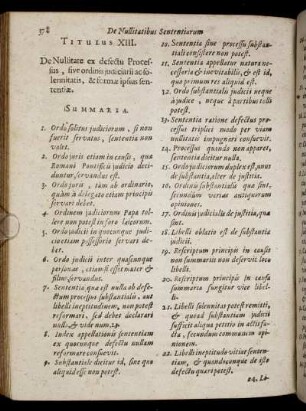 58 De Nullitatibus Sententiarum
TITULUS XIII.
De Nullitate ex defectu Proces-
sus, sive ordinis judiciarii ac so-
lennitatis, & formæ ipsius sen-
tentiæ.
SUMMARIA.
1. Ordo solitus judiciorum, si non
fuerit servatus, sententia non
valet.
2. Ordo juris etiam in causis, qua
Romani Pontificis judicio deci-
duntur, servandus est.
3. Ordo juris, tam ab ordinario,
quam à delegato etiam principis
servari debet.
4. Ordinem judiciorum Papa tol-
lere non potest in foro laicorum.
5. Ordo judicii in quocunque judi-
cio etiam possessorio servari de-
bet.
6. Ordo judicii inter quascunque
personas, etiamsi esset mater &
filius, servandus.
7. Sententia quæ est nulla ob defe-
ctum processus substantialis, aut
libelli ineptitudinem, non potest
reformari, sed debet declarari
nulla & vide num. 24.
8. Iudex appellationis sententiam
ex quocunque defectu nullam
reformare consuevit.
9. Substantiale dicitur id, sine quo
aliquid esse non potest.
10. Sententia sine processu substan-
tiali consistere non potest.
11. Sententia appellatur natura ne-
cessaria & inevitabilis, & est id,
qua primum res aliquid est.
12. Ordo substantialis judicii neque
à judice, neque à partibus tolli
potest.
13. Sententia ratione defectus pro-
cessus triplici modo per viam
nullitatis impugnari consuevit.
14. Processus quando non apparet,
sententia dicitur nulla.
15. Ordo judiciorum duplex est, unus
de substantia, alter de justitia.
16. Ordinis substantialia quæ sint,
secundum varias antiquorum
opiniones.
17. Ordinis judicialis de justitia, quæ
sint.
18. Libelli oblatio est de substantia
judicii.
19. Rescriptum principis in causis
non summariis non deservit loco
libelli.
20. Rescriptum principis in causa
summaria fungitur vice libel-
li.
21. Libelli solennitas potest remitti,
& quoad substantiam judicii
sufficit aliqua petitio in actis fa-
cta, secundum communem con-
clusionem.
22. Libelli ineptitudo vitiat senten-
tiam, & quandocunque de isto
defectu quæri potest.